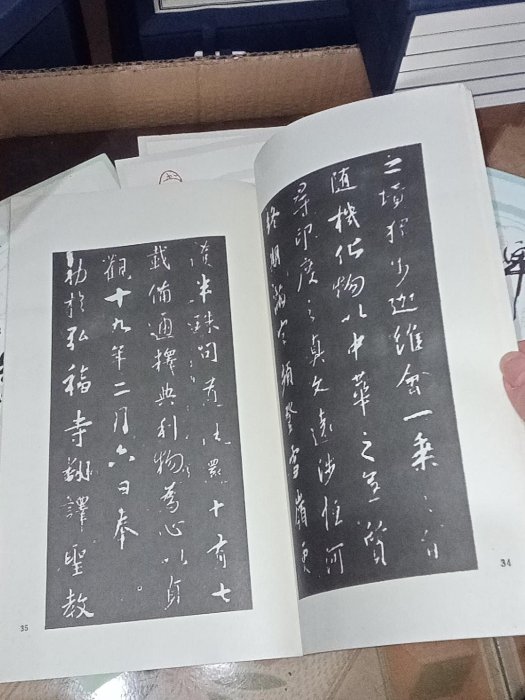 之境獨步迦維會一乘之旨
隨機化物以中華之無質
尋印度之真文遠涉恒河
終期滿字頻登雪嶺更
34
獲半珠問道法還十有七
載備通釋典利物為心以貞
觀十九年二月六日奉
勅於弘福寺翻譯聖教
35